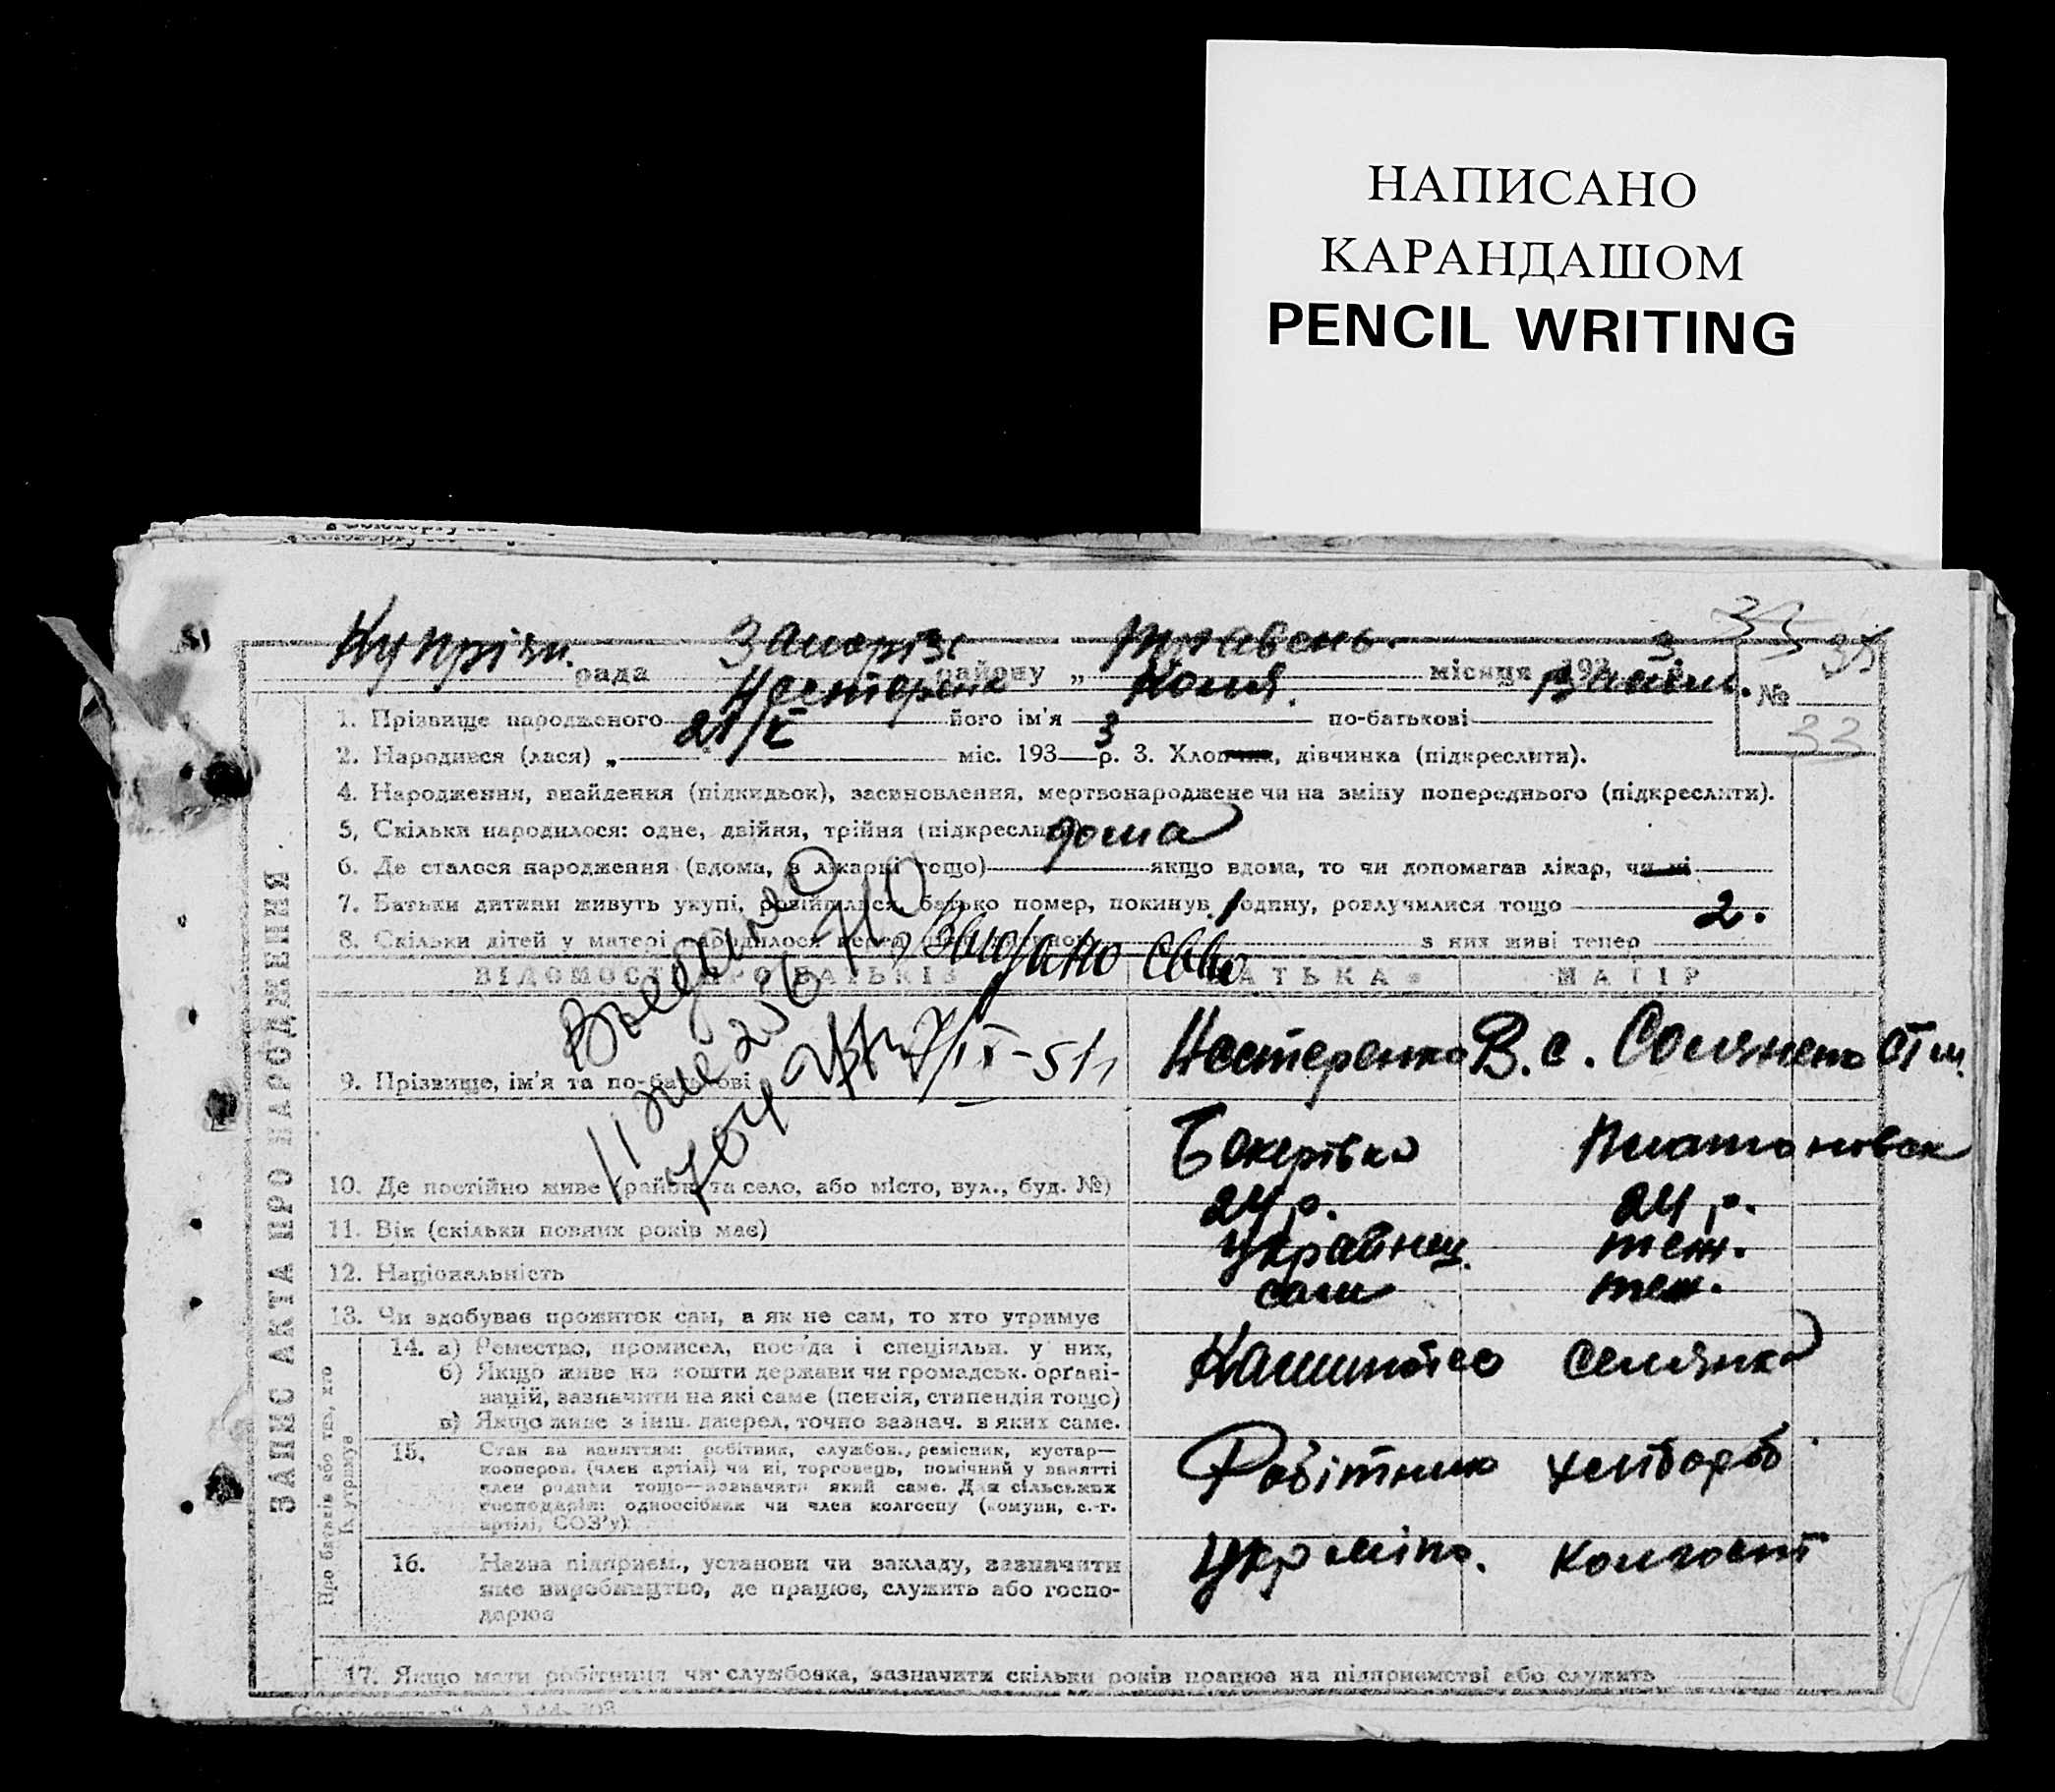 НАПИСАНО
КАРАНДАШОМ
PENCIL WRITING
Купріян. рада Запоріз району „ Травень. місяця 193 3
№ 33
1. Прізвище народженого Нестеренк його ім'я Коля. по-батькові
2. Народився (лася) „ 21/ міс. 193 3 р. 3. Хлопчик, дівчинка (підкреслити).
4. Народження, знайдення (підкидьок), засиновлення, мертвонароджене чи на зміну попереднього (підкреслити).
5, Скільки народилося: одне, двійня, трійня (підкресли
6. Де сталося народження (вдома, в лікарні тощо) дома якщо вдома, то чи допомагав лікар, чи ні
7. Батьки дитини живуть укупі, розійшлися, батько помер, покинув родину, розлучилися тощо
8. Скільки дітей у матері народилося перед з них живі тепер 2.
Видано
Выдано свво
IX-51
ВІДОМОСТІ ПРО БАТЬКІВ БАТЬКА МАТІР
9. Прізвище, ім'я та по-батькові Нестеренко В. С.
10. Де постійно живе (район та село, або місто, вул., буд. №)
11. Вік (скільки повних років має) 24 р. 24 р.
12. Національність українец. теж.
13. Чи здобуває прожиток сам, а як не сам, то хто утримує сам теж.
14. а) Ремество, промисел, посада і спеціяльн. у них, селянка
б) Якщо живе на кошти держави чи громадськ. орґані-
зацій, зазначити на які саме (пенсія, стипендія тощо)
в) Якщо живе з інш. джерел, точно зазнач. з яких саме.
15. Стан за заняттям: робітник, службов., ремісник, кустар— Робітник хлібороб
кооперов. (член артілі) чи ні, торговець, помічний у занятті
член родини тощо—зазначити який саме. Для сільських
господарів: одноосібник чи член колгоспу (комуни, с.-г.
артілі, СОЗ'у)
16. Назва підприєм., установи чи закладу, зазначити колгосп
яке виробництво, де працює, служить або госпо-
дарює
17. Якщо мати робітниця чи службовка, зазначити скільки років працює на підприємстві або служить
ЗАПИС АКТА ПРО НАРОДЖЕННЯ
Про батьків або тих, хто
їх утримує